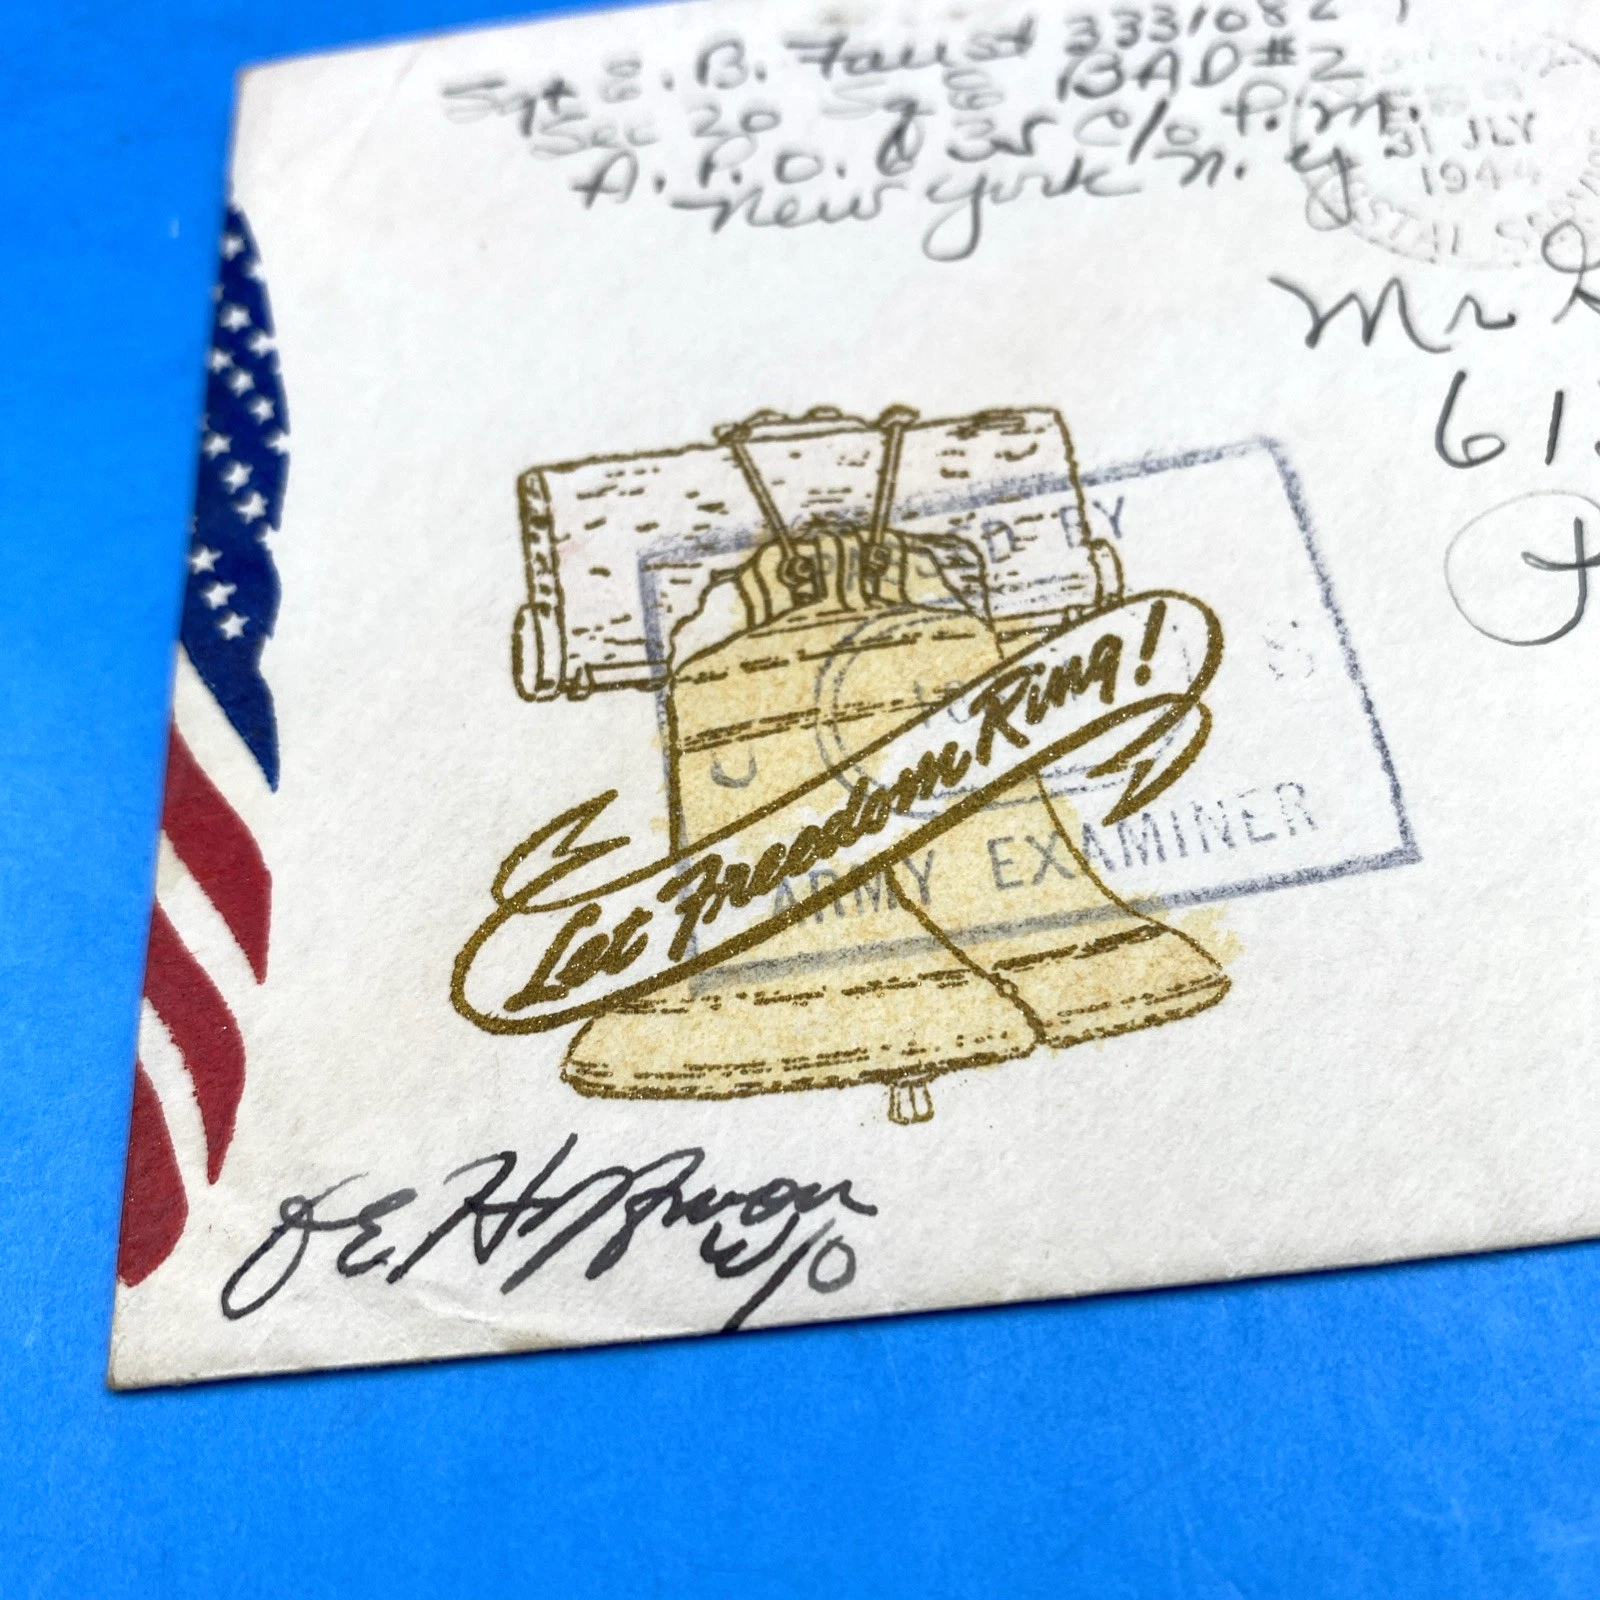 Sgt E. B. Faust 3331082
Sec 20 Sq E BAD#2
A.P.O. 635 c/o P.M.
New York N.Y
31 JLY
1944
POSTAL SERVICE
Mr
61
PASSED BY
U S
ARMY EXAMINER
Let Freedom Ring!
W/O